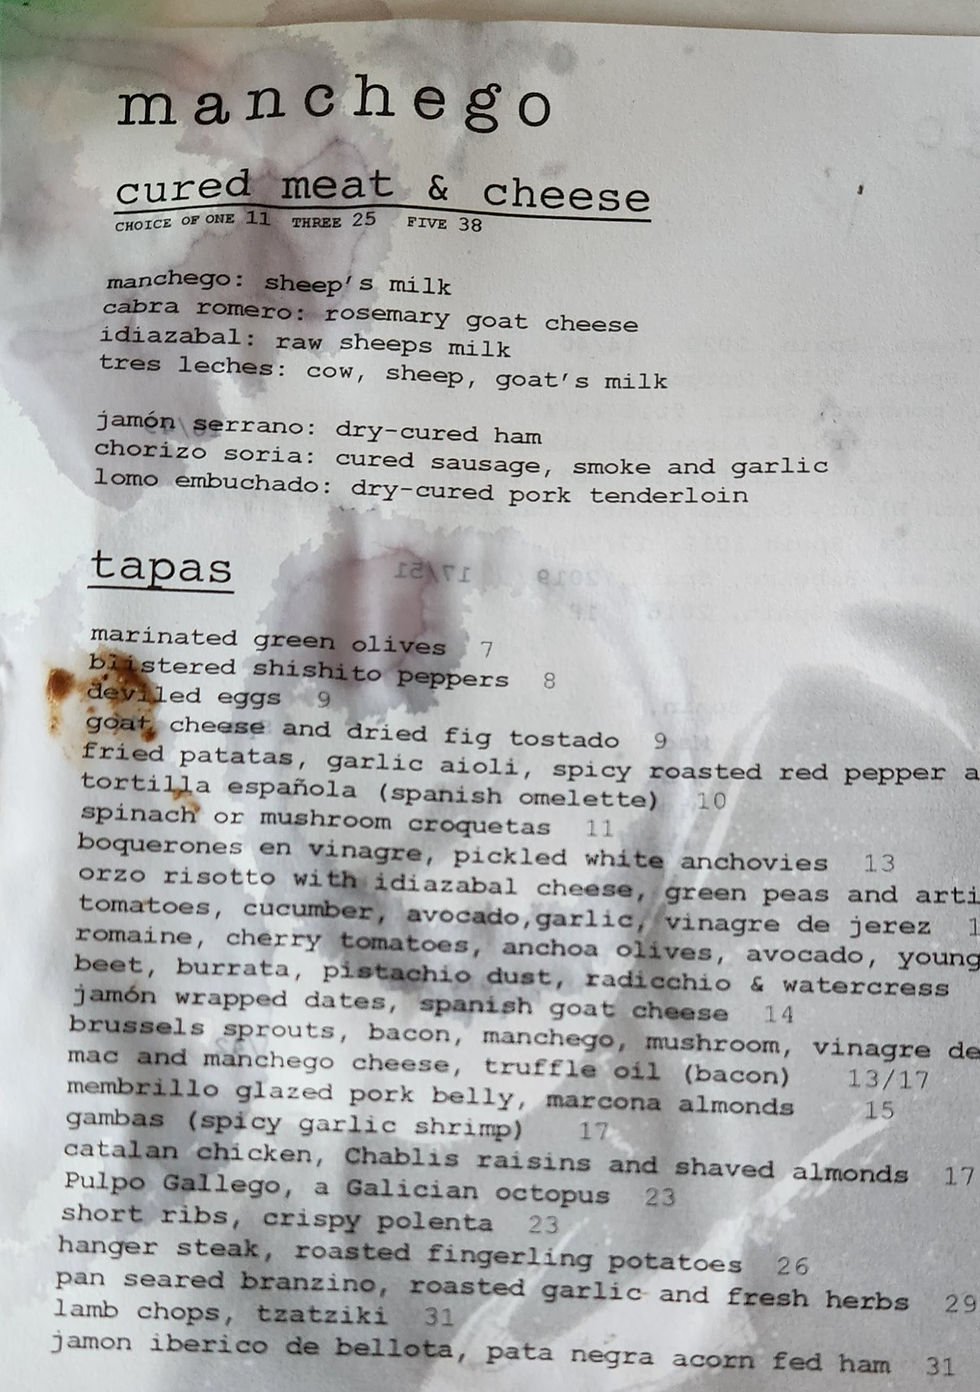 manchego
cured meat & cheese
CHOICE OF ONE 11 THREE 25 FIVE 38
manchego: sheep's milk
cabra romero: rosemary goat cheese
idiazabal: raw sheeps milk
tres leches: cow, sheep, goat's milk
jamón serrano: dry-cured ham
chorizo soria: cured sausage, smoke and garlic
lomo embuchado: dry-cured pork tenderloin
tapas
marinated green olives 7
blistered shishito peppers 8
deviled eggs 9
goat cheese and dried fig tostado 9
fried patatas, garlic aioli, spicy roasted red pepper a
tortilla española (spanish omelette) 10
spinach or mushroom croquetas 11
boquerones en vinagre, pickled white anchovies 13
orzo risotto with idiazabal cheese, green peas and arti
tomatoes, cucumber, avocado,garlic, vinagre de jerez 1
romaine, cherry tomatoes, anchoa olives, avocado, young
beet, burrata, pistachio dust, radicchio & watercress
jamón wrapped dates, spanish goat cheese 14
brussels sprouts, bacon, manchego, mushroom, vinagre de
mac and manchego cheese, truffle oil (bacon) 13/17
membrillo glazed pork belly, marcona almonds 15
gambas (spicy garlic shrimp) 17
catalan chicken, Chablis raisins and shaved almonds 17
Pulpo Gallego, a Galician octopus 23
short ribs, crispy polenta 23
hanger steak, roasted fingerling potatoes 26
pan seared branzino, roasted garlic and fresh herbs 29
lamb chops, tzatziki 31
jamon iberico de bellota, pata negra acorn fed ham 31